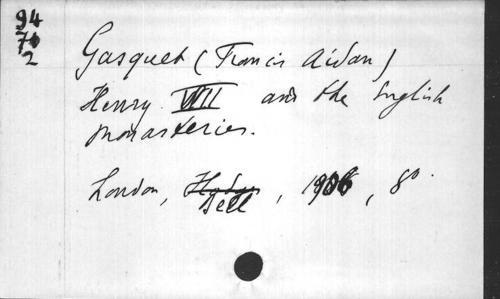 94
70
2
Gasquet (Francis Aidan)
Henry VIII and the English
monasteries.
London, Bell, 1906, 8o.